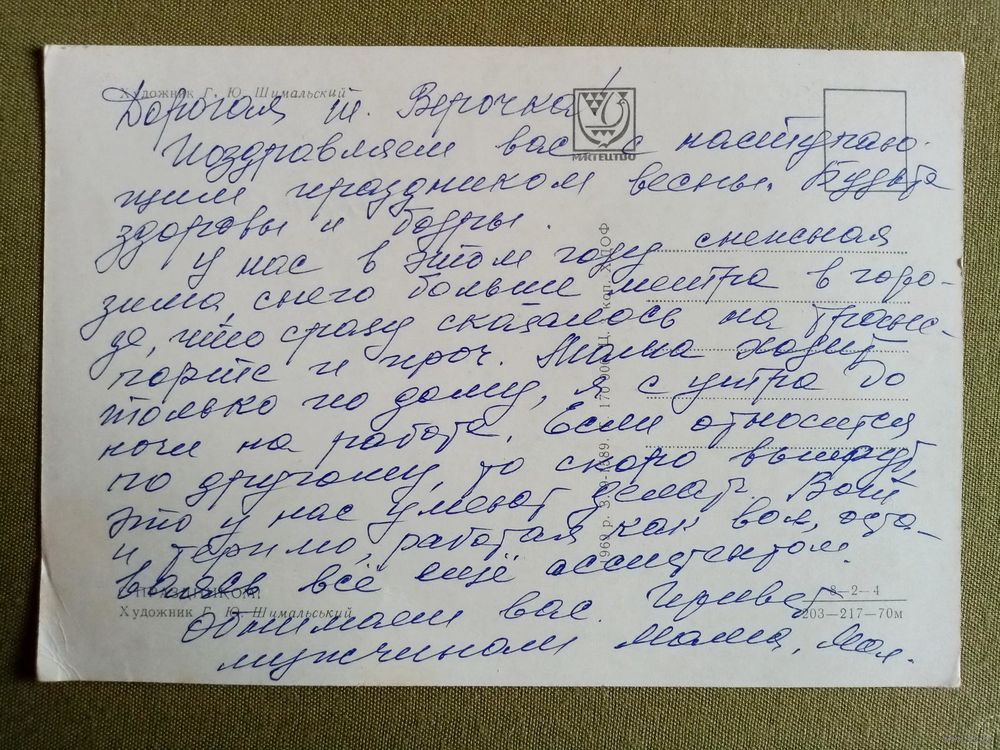 Художник Г. Ю. Шимальский
Дорогая т. Верочка!
Поздравляем вас с наступаю-
щим праздником весны. Будьте
здоровы и бодры.
У нас в этом году снежная
зима, снега больше метра в горо-
де, что сразу сказалось на транс-
порте и проч. Мама ходит
только по дому, я с утра до
ночи на работе. Если относится
по другому, то скоро
это у нас умеют делат. Вот
и терплю, работая как вол, оста-
ваясь всё ещё ассистентом.
Обнимаем вас. Привет
мужчинам. Мама,
МИСТЕЦТВО
1969 р. З. 9-1589. 170 000. Ц. коп. ХКДОФ
З ПРАЗДНИКОМ!
Художник Г. Ю. Шимальський
8—2—4
203—217—70м